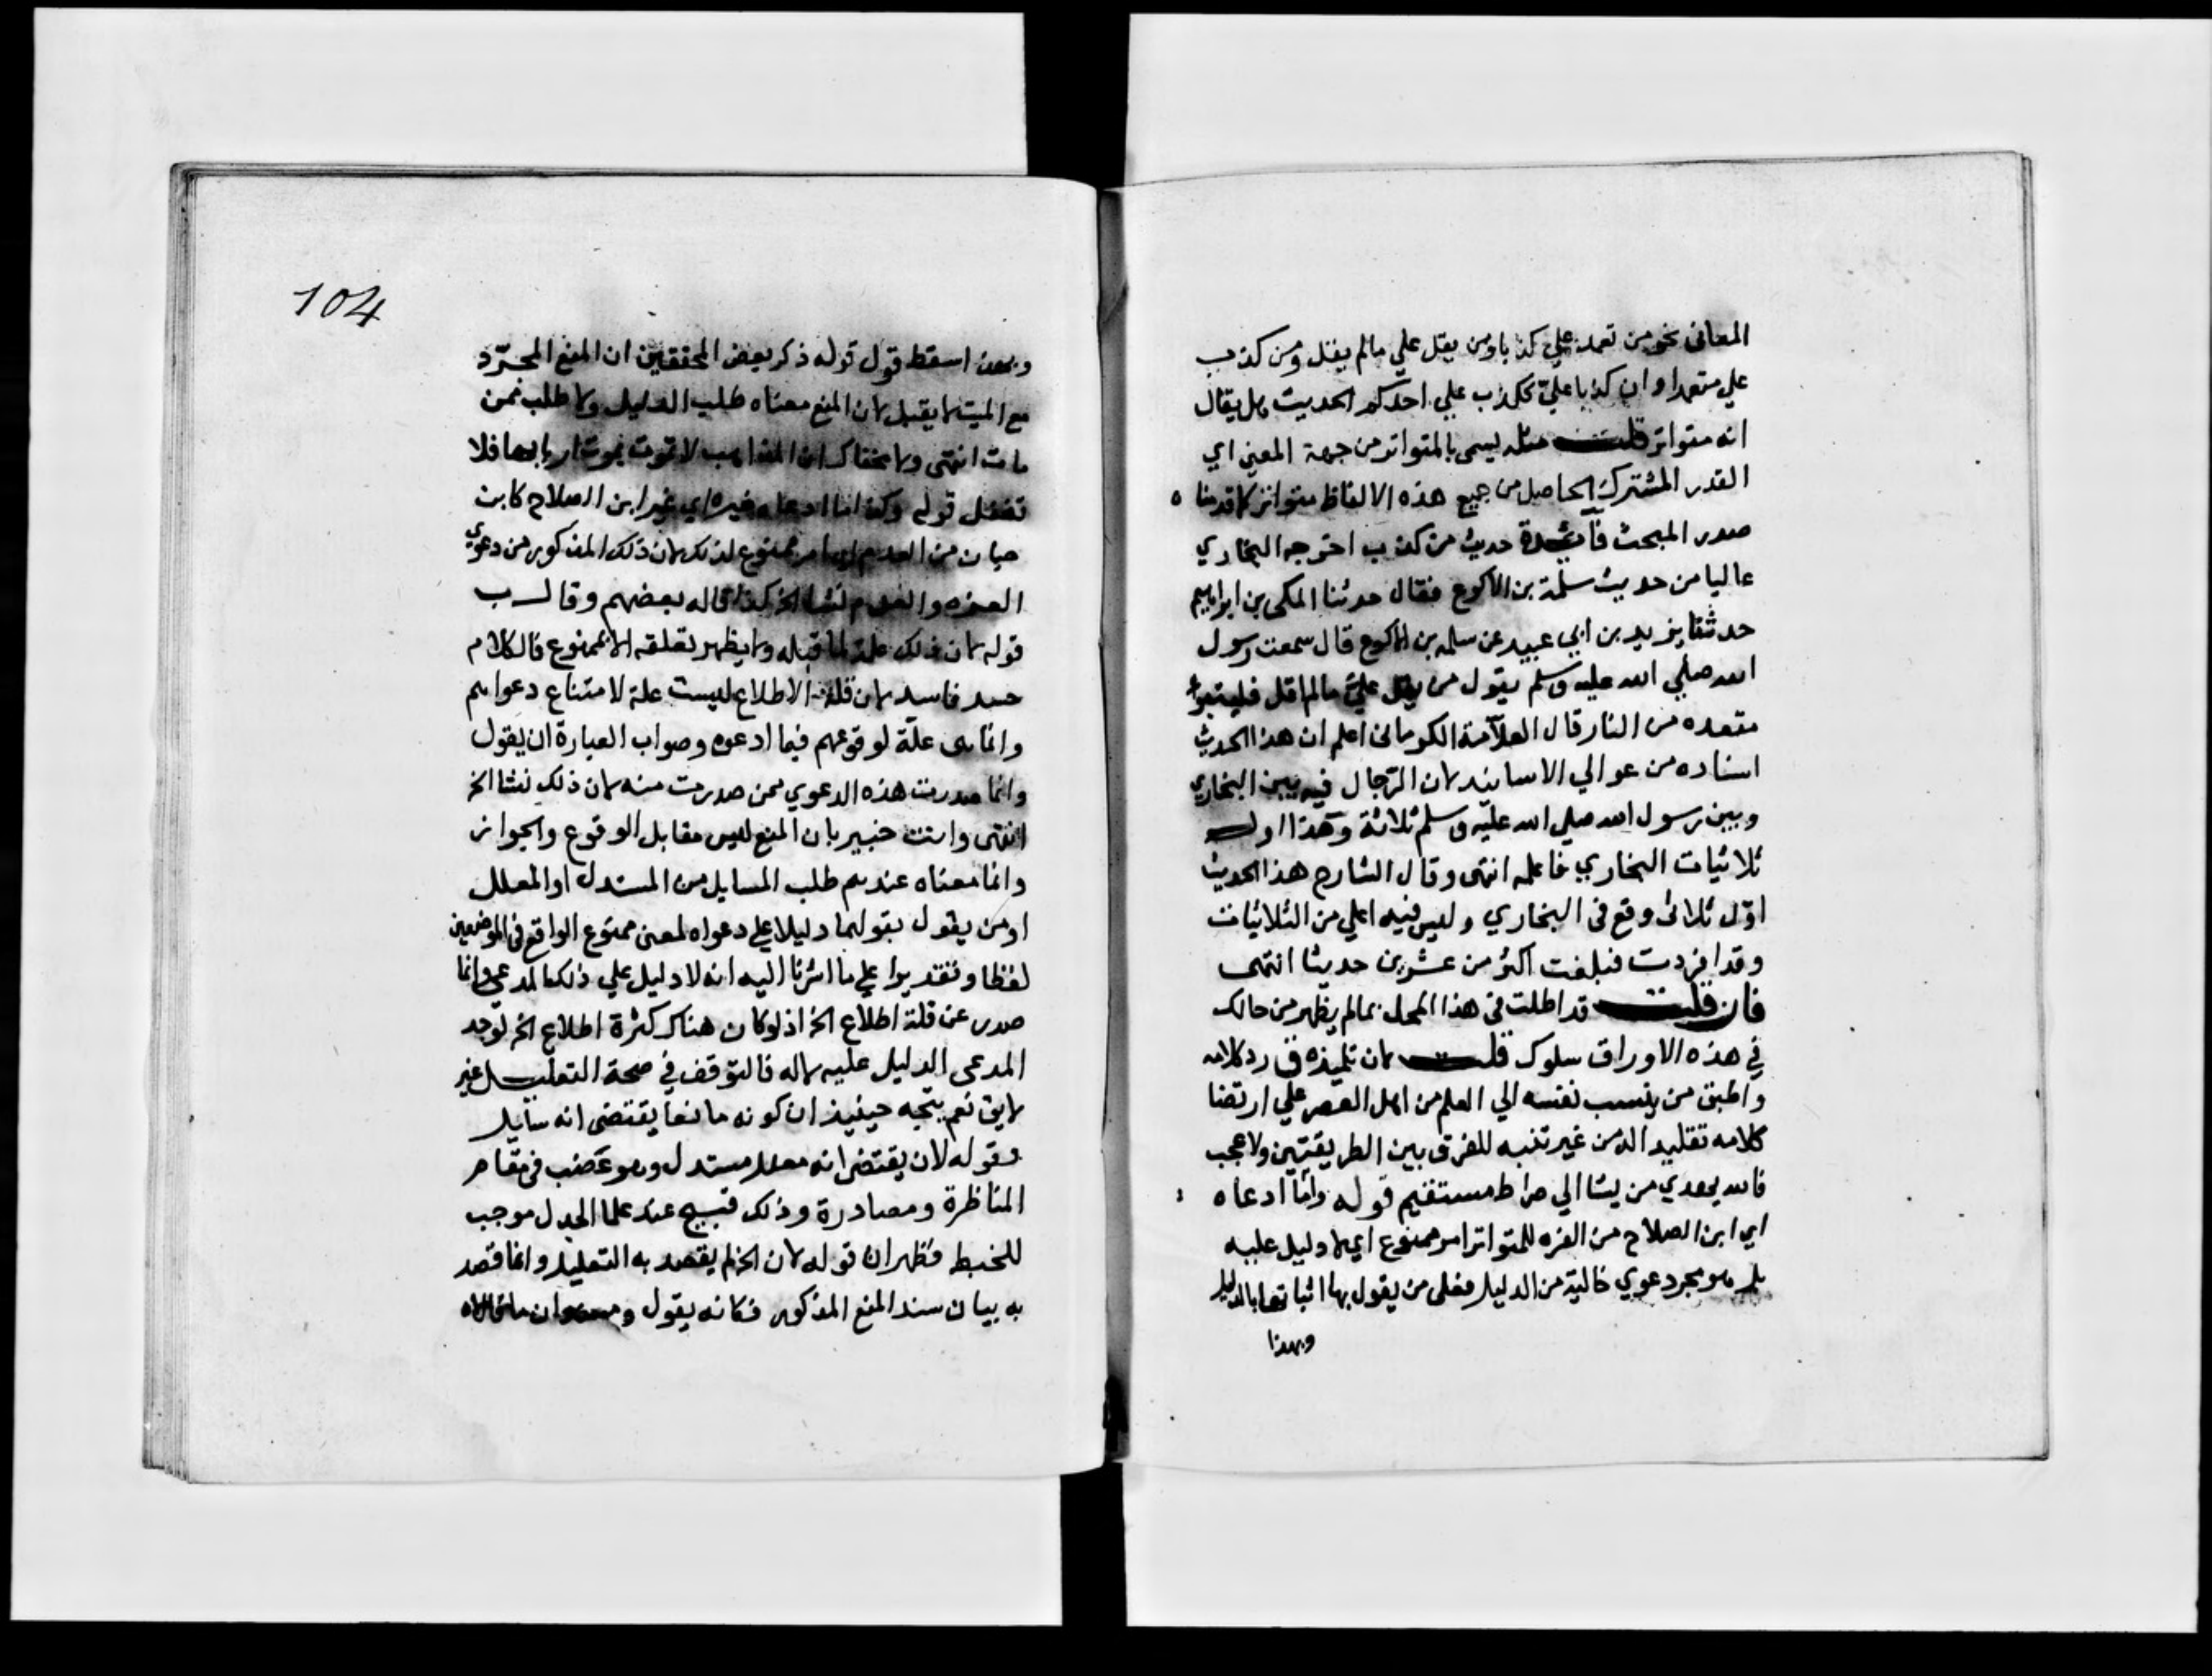 المعاني نحو من تعمد علي كذبا ومن يقل علي مالم يقل ومن كذب
علي متعمدا وان كذبا علي ككذب علي احدكم الحديث هل يقال
انه متواتر قلت مثله ليسمى بالمتواتر من جهة المعني اي
القدر المشترك الحاصل من جميع هذه الالفاظ متواتر كما قدمنا ه
صدر المبحث فائدة حديث من كذب اخرجه البخاري
عاليا من حديث سلمة بن الاكوع فقال حدثنا المكي بن ابراهيم
حدثنا يزيد بن ابي عبيد عن سلمه بن الاكوع قال سمعت رسول
الله صلي الله عليه وسلم يقول من يقل عليّ مالم اقل فليتبوا
مقعده من النار قال العلامة الكرماني اعلم ان هذا الحديث
اسناده من عوالي الاسانيد لان الرجال فيه بين البخاري
وبين رسول الله صلي الله عليه وسلم ثلاثة وهذا اول
ثلاثيات البخاري فاعلمه انتهى وقال الشارح هذا الحديث
اوّل ثلاثى وقع فى البخاري وليس فيه اعلي من الثلاثيات
وقد افردت فبلغت اكثر من عشرين حديثا انتهى
فان قلت قد اطلت في هذا المحل بمالم يظهر من حالك
في هذه الاوراق سلوك قلت لان تلميذه ق رد كلامه
واطبق من ينسب نفسه الي العلم من اهل العصر علي ارتضا
كلامه تقليدا له من غير تنبه للفرق بين الطريقتين ولا عجب
فالله يهدي من يشا الي صراط مستقيم قوله وما ادعاه
اي ابن الصلاح من العزه للمتواتر امر ممنوع اي لا دليل عليه
بل هو مجرد دعوي خالية من الدليل فعلى من يقول بها اثباتها بالدليل
وبهذا
104
وبهذا سقط قول قوله ذكر بعض المحققين ان المنع المجرّد
مع الميت لا يقبل لان المنع معناه طلب الدليل ولا طلب ممن
مات انتهى ولا يخفاك ان المذاهب لا تموت بموت اربابها فلا
تغفل قوله وكذا ما ادعاه غيره اي غير ابن الصلاح كابن
حبان من العدم اي امر ممنوع لذلك لان ذلك المذكور من دعوي
العزه والعدم نشا الخ كذا قاله بعضهم وقال ب
قوله لان ذلك علة لما قبله ولا يظهر تعلقه الا بممنوع فالكلام
فاسد لان قلة الاطلاع ليست علة لامتناع دعواهم
وانما هى علّة لوقوعهم فيما ادعوه وصواب العبارة ان يقول
وانما صدرت هذه الدعوي ممن صدرت منه لان ذلك نشا الخ
انتهى وانت خبير بان المنع ليس مقابل الوقوع والجواز
وانما معناه عندهم طلب السايل من المستدل او المعلل
او من يقول بقولهما دليلا علي دعواه لمعنى ممنوع الواقع فى الموضعين
لفظا وتقديرا علي ما اشرنا اليه انه لا دليل علي ذلك المدعي وانما
صدر عن قلة اطلاع الخ اذ لو كان هناك كثرة اطلاع الخ لوجد
المدعى الدليل عليه لاله فالتوقف في صحة التعليل غير
لايق نعم يتجه حينيذ ان كونه مانعا يقتضى انه سايل
وقوله لان يقتضى انه معلل مستدل وهو غصب في مقام
المناظرة ومصادرة وذلك قبيح عند علما الجدل موجب
للخبط فظهر ان قوله لان الخ لم يقصد به التعليل وانما قصد
به بيان سند المنع المذكور فكانه يقول